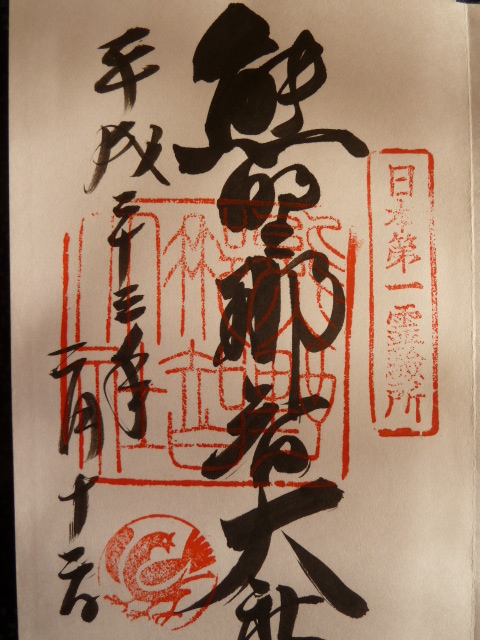 日本第一霊験所
熊野那智大社
平成二十三年
二月十